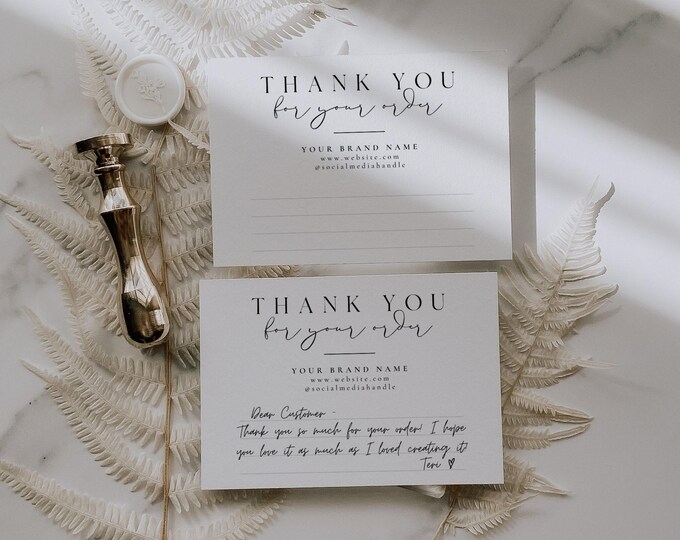 THANK YOU
for your order
YOUR BRAND NAME
www.website.com
@socialmediahandle
THANK YOU
for your order
YOUR BRAND NAME
www.website.com
@socialmediahandle
Dear Customer -
Thank you so much for your order! I hope
you love it as much as I loved creating it!
Teri ♡